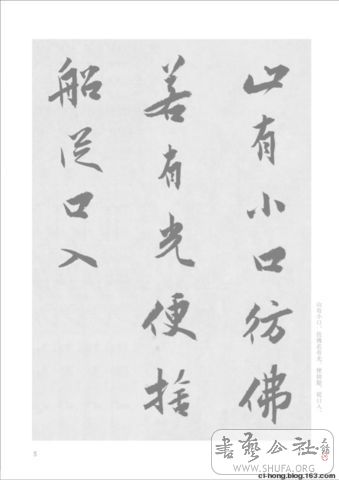 山有小口彷佛
若有光便捨
船從口入
山有小口，彷彿若有光，便捨船，從口入。
5
書藝公社
WWW.SHUFA.ORG
ci-hong.blog.163.com